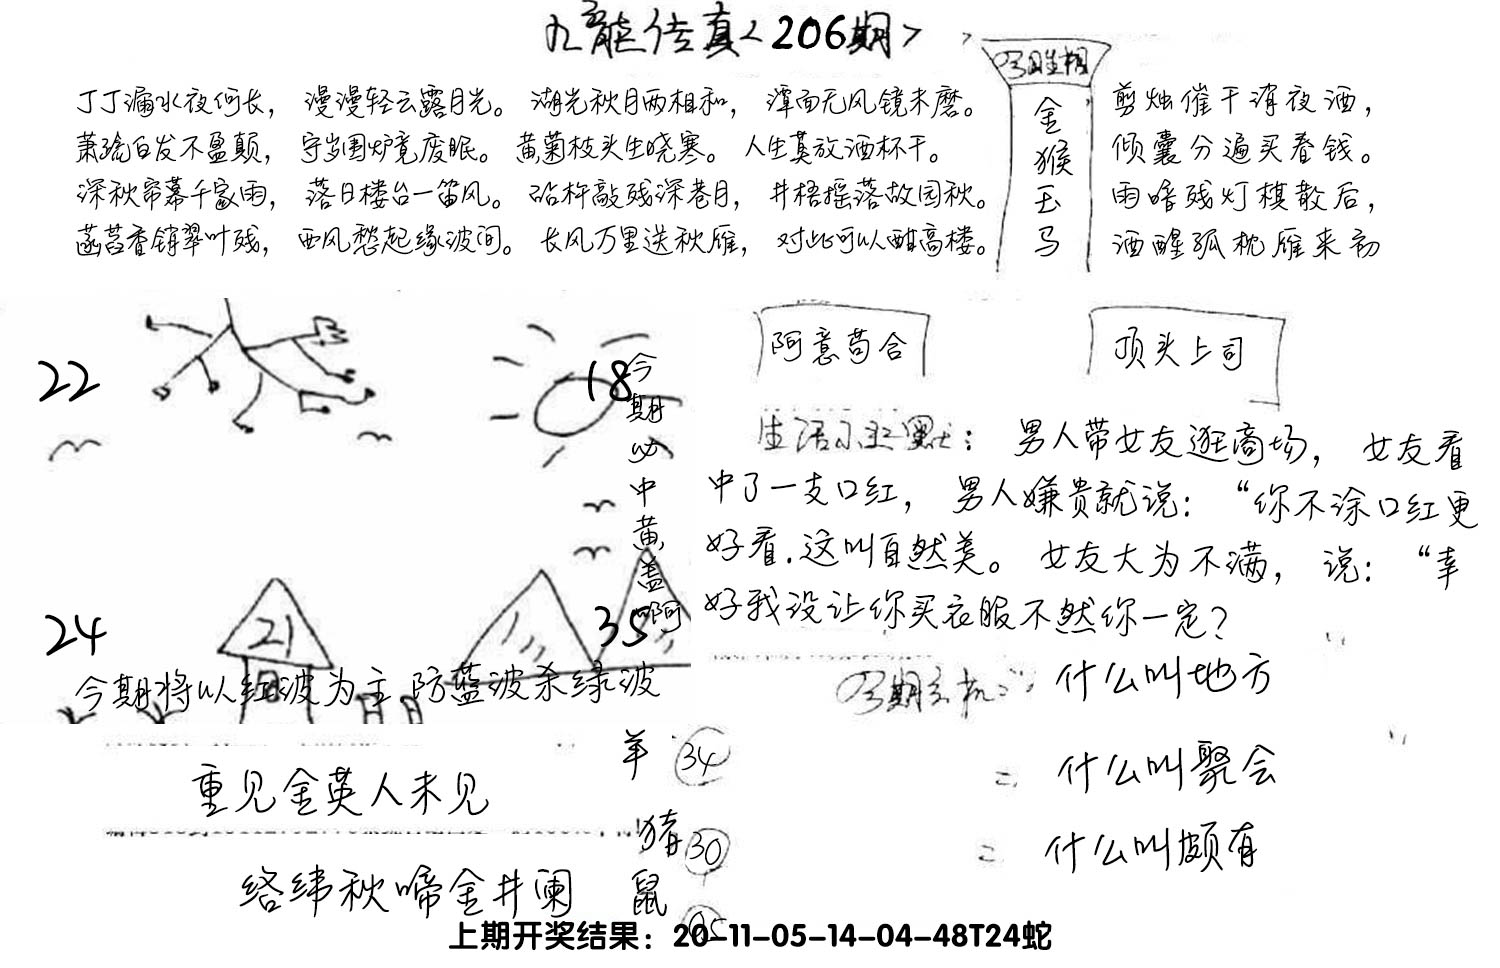 九龙传真<206期>
丁丁漏水夜何长，漫漫轻云露月光。湖光秋月两相和，潭面无风镜未磨。
萧疏白发不盈颠，守岁围炉竟废眠。黄菊枝头生晓寒。人生莫放酒杯干。
深秋帘幕千家雨，落日楼台一笛风。砧杵敲残深巷月，井梧摇落故园秋。
菡萏香销翠叶残，西风愁起绿波间。长风万里送秋雁，对此可以酣高楼。
金
猴
玉
马
剪烛催干消夜酒，
倾囊分遍买春钱。
雨暗残灯棋散后，
酒醒孤枕雁来初
22
18
24
21
35
今期必中黄盖啊
今期将以红波为主防蓝波杀绿波
阿意苟合
顶头上司
生活幽默：男人带女友逛商场，女友看
中了一支口红，男人嫌贵就说：“你不涂口红更
好看.这叫自然美。女友大为不满，说：“幸
好我没让你买衣服不然你一定？
今期玄机：什么叫地方
=什么叫聚会
=什么叫颇有
重见金英人未见
络纬秋啼金井阑
羊 34
猪 30
鼠
上期开奖结果：20-11-05-14-04-48T24蛇